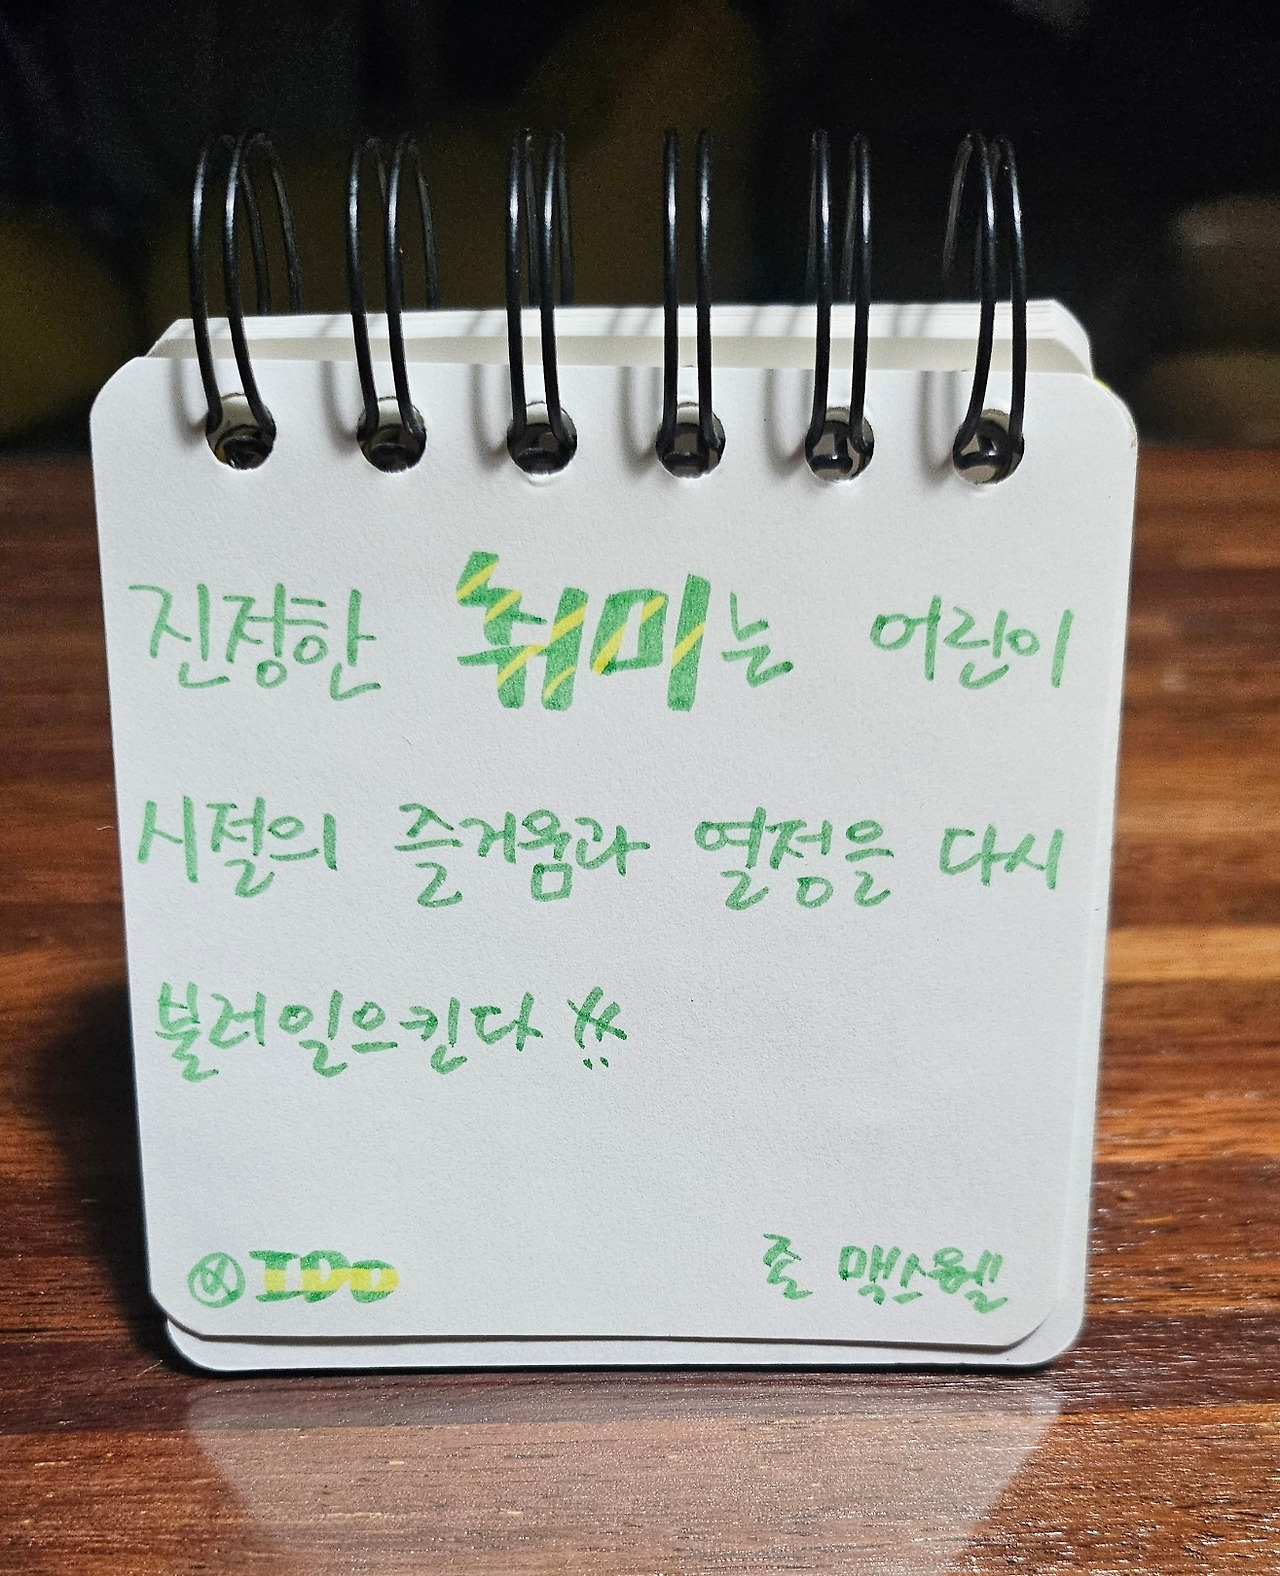 진정한 취미는 어린이
시절의 즐거움과 열정을 다시
불러일으킨다 !!
IDO
존 맥스웰